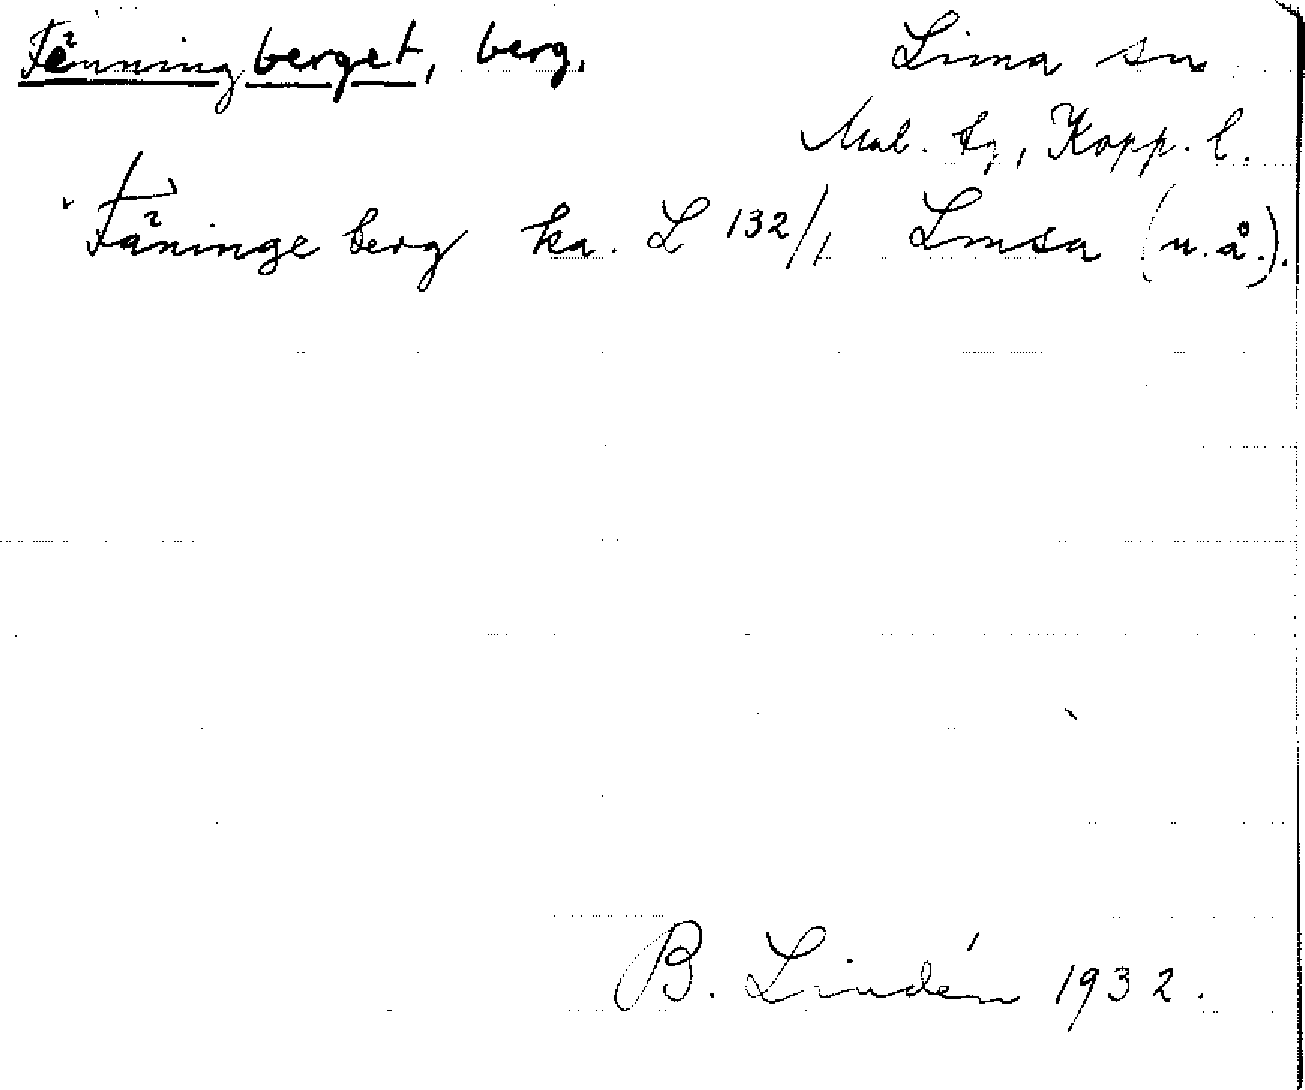 Fänningberget, berg.
Lima sn
Mal. tg, Kopp. l.
Fäninge berg ka. L 132/1 Limsa (u.å.).
B. Lindén 1932.